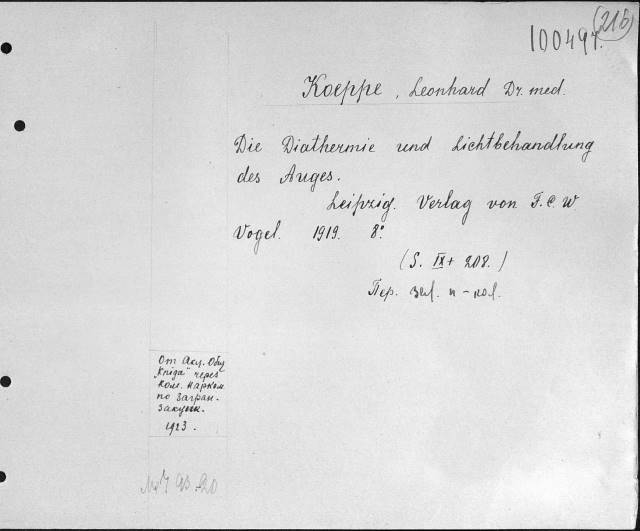 (216)
100497.
Koeppe, Leonhard Dr. med.
Die Diathermie und Lichtbehandlung
des Auges.
Leipzig. Verlag von F. C. W
Vogel. 1919. 8°
(S. IX + 208.)
Пер. зел. п-кол.
От Акц. Общ
"Kniga" через
Ком. Нарком
по загран.
закупк.
1923.